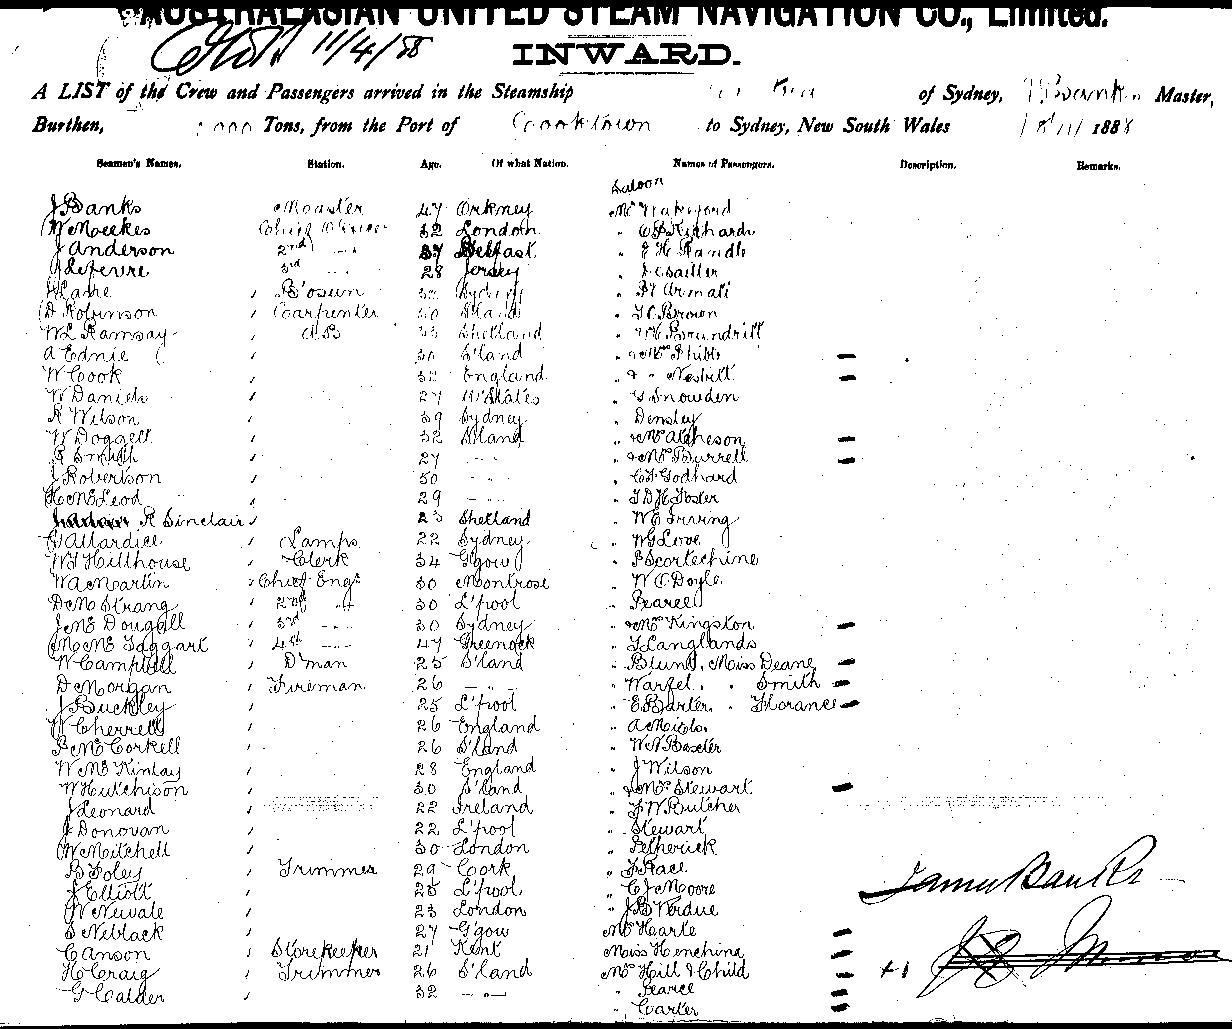 AUSTRALASIAN UNITED STEAM NAVIGATION CO., Limited.
11/4/88
INWARD.
A LIST of the Crew and Passengers arrived in the Steamship of Sydney, J Banks Master,
Burthen, Tons, from the Port of Cooktown to Sydney, New South Wales 1888
Seamen's Names. Station. Age. Of what Nation. Names of Passengers. Description. Remarks.
Saloon
J Banks Master 47 Orkney Mr Wakeford
W Meekes Chief Officer 32 London " Richards
J Anderson 2nd " 37 Belfast " E H Randle
J Lefevre 3rd " 28 Jersey "
J Lane , B'osun Sydney "
D Robinson , Carpenter S'land " Brown
W L Ramsay , A B 33 Shetland " Boundrill
A Ednie , S'land " & Mrs Phibbs –
W Cook , 32 England " & " Nesbitt –
W Daniels , 27 U'States " G Snowden
R Wilson , 39 Sydney " Densley
W Doggett , 32 S'land " & Mrs Atcheson –
R Smith , 27 " " & Mrs Burrell –
J Robertson , 50 " " C F Godhard
H McLeod , 29 " " T D H Foster
R Sinclair , 23 Shetland " W E Irving
G Allardice , Lamps 22 Sydney " W G Love
W J Hillhouse , Clerk 34 G'gow " P Scortechine
W A Martin , Chief Engr 30 Montrose " W C Doyle
D McStrang , 2nd " 30 L'pool " Pearce
J McDougall , 3rd " 30 Sydney " & Mrs Kingston –
M McTaggart , 4th " 47 Greenock " Langlands
W Campbell , D'man 25 S'land " Blunt, Miss Deane –
D Morgan , Fireman 26 " " " Smith –
J Buckley , 25 L'pool " E Barter " Florance –
W Cherrell , 26 England " A
P McCorkell , 26 S'land " W N Baxter
W McKinlay , 28 England " J Wilson
W Hutchison , 30 S'land " & Mrs Stewart –
J Leonard , 22 Ireland " J W Butcher
J Donovan , 22 L'pool " Stewart
W Mitchell , 30 London " Petherick
B Foley , Trimmer 29 Cork " J Race
J Elliott , 25 L'pool " C J Moore
W Newale , 23 London " J B Verdue
S Niblack , 27 G'gow Mr Harte –
C Anson , Storekeeper 21 Kent Miss Henchina –
H Craig , Trimmer 26 S'land Mrs Hill & Child –
G Calder , 32 " " Pearce –
" Carter –
James Banks
+1